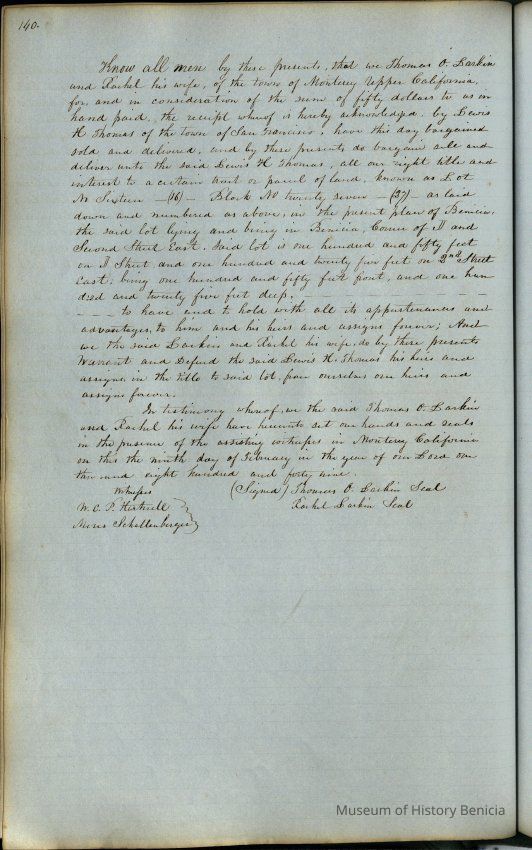 140.
Know all men by these presents, that we Thomas O. Larkin
and Rachel his wife, of the town of Monterey Upper California,
for, and in consideration of the sum of fifty dollars to us in
hand paid, the receipt whereof is hereby acknowledged, by Lewis
H. Thomas of the town of San Francisco, have this day bargained
sold and delivered, and by these presents do bargain sell and
deliver unto the said Lewis H. Thomas, all our right title and
interest to a certain lot or parcel of land, known as Lot
No Sixteen —(16)— Block No twenty seven —(27)— as laid
down and numbered as above, in the present plan of Benicia,
the said lot lying and being in Benicia, Corner of I and
Second Street East. Said lot is one hundred and fifty feet
on I Street and one hundred and twenty five feet on 2nd Street
East, being one hundred and fifty feet front, and one hun
dred and twenty five feet deep.
to have and to hold with all its appurtenances and
advantages, to him and his heirs and assigns forever; And
we the said Larkin and Rachel his wife, do by these presents
Warrant and Defend the said Lewis H. Thomas his heirs and
assigns in the title to said lot, from ourselves our heirs and
assigns forever.
In testimony whereof, we the said Thomas O. Larkin
and Rachel his wife have hereunto set our hands and seals
in the presence of the assisting witnesses in Monterey California
on this the ninth day of February in the year of our Lord one
thousand eight hundred and forty nine.
Witnesses (Signed) Thomas O. Larkin Seal
W. E. P. Hartnell Rachel Larkin Seal
Moses Schallenberger
Museum of History Benicia